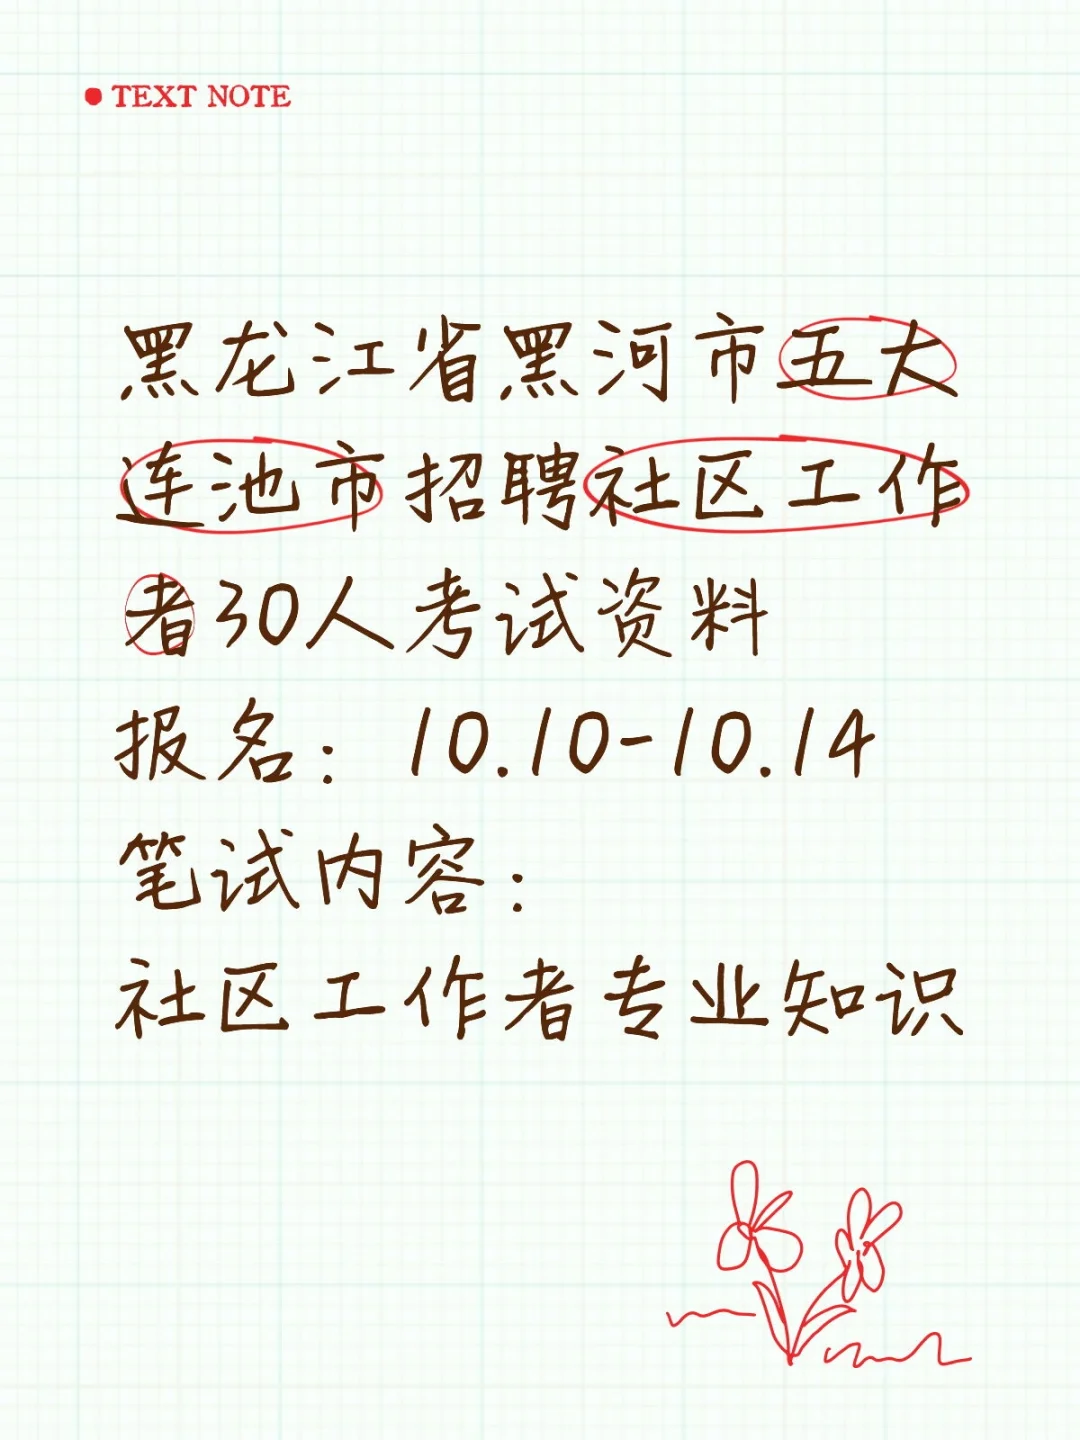 TEXT NOTE
黑龙江省黑河市五大
连池市招聘社区工作
者30人考试资料
报名：10.10-10.14
笔试内容：
社区工作者专业知识